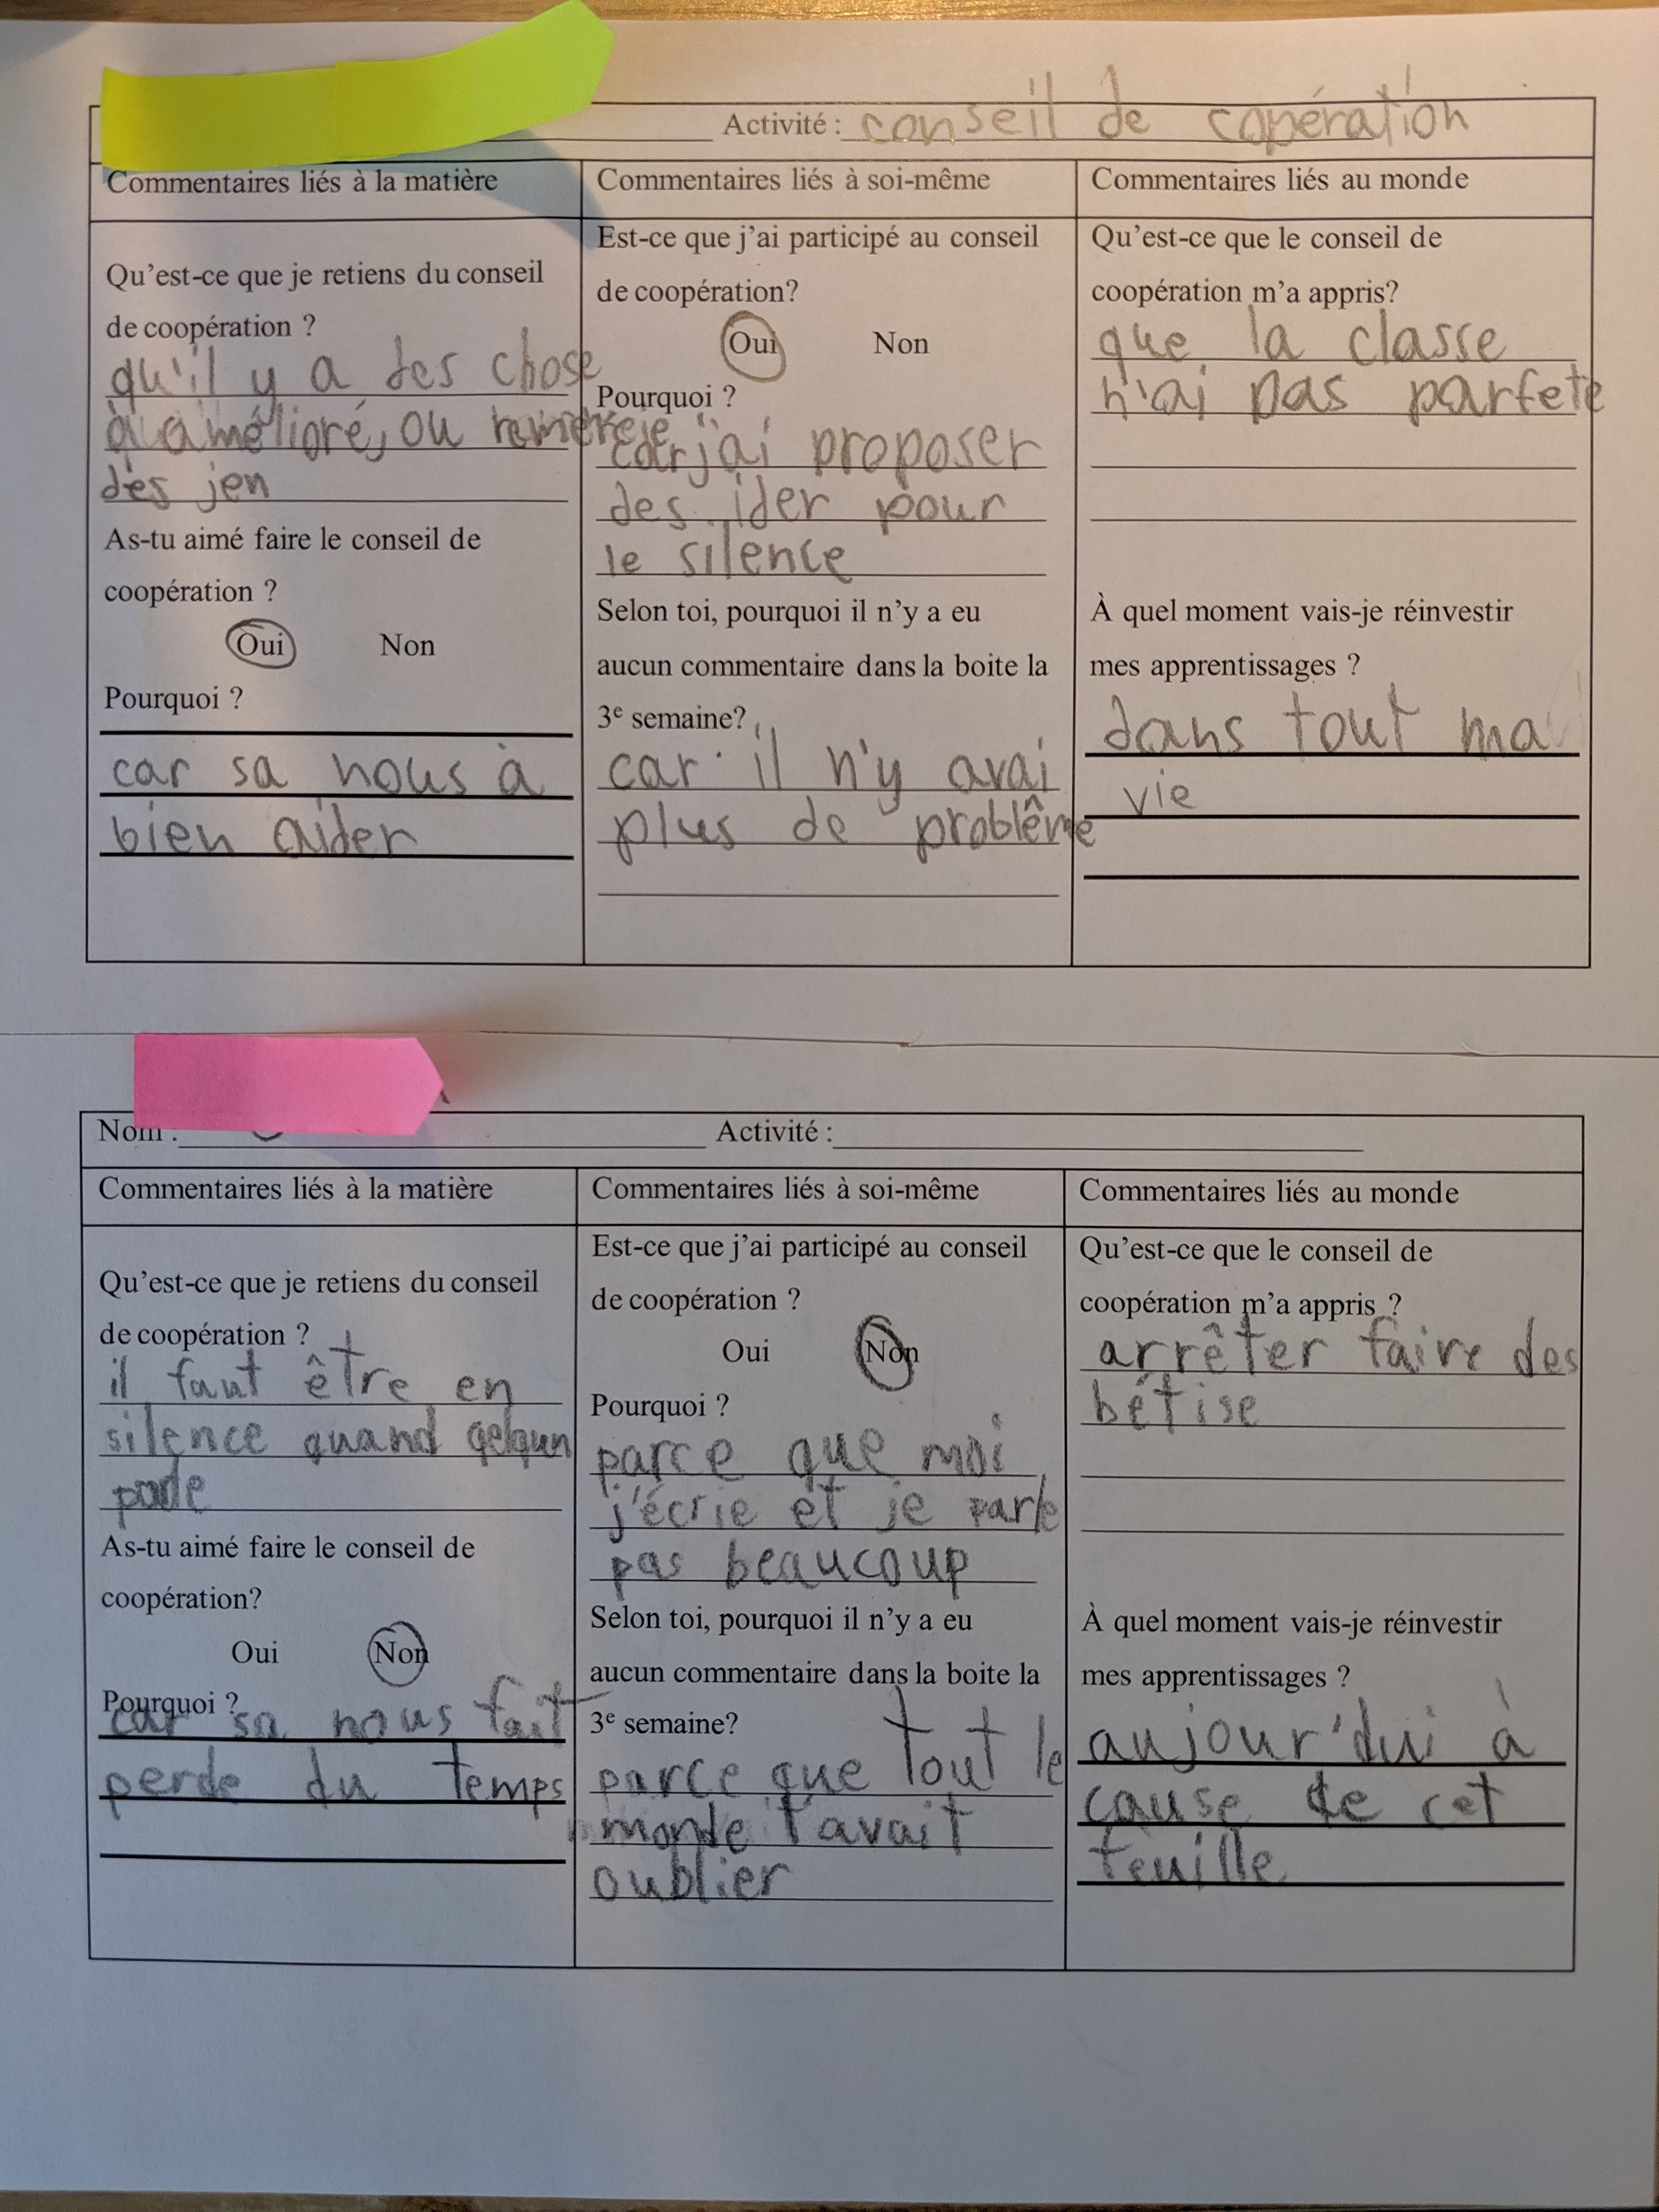 Activité : conseil de copération
Commentaires liés à la matière
Qu'est-ce que je retiens du conseil
de coopération ?
qu'il y a des chose
à amélioré, ou
des jen
As-tu aimé faire le conseil de
coopération ?
Oui Non
Pourquoi ?
car sa nous à
bien aider
Commentaires liés à soi-même
Est-ce que j'ai participé au conseil
de coopération?
Oui Non
Pourquoi ?
car j'ai proposer
des ider pour
le silence
Selon toi, pourquoi il n'y a eu
aucun commentaire dans la boite la
3e semaine?
car il n'y avai
plus de problême
Commentaires liés au monde
Qu'est-ce que le conseil de
coopération m'a appris?
que la classe
n'ai pas parfete
À quel moment vais-je réinvestir
mes apprentissages ?
dans tout ma
vie
Nom : Activité :
Commentaires liés à la matière
Qu'est-ce que je retiens du conseil
de coopération ?
il faut être en
silence quand qelqun
parle
As-tu aimé faire le conseil de
coopération?
Oui Non
Pourquoi ?
car sa nous fait
perde du temps
Commentaires liés à soi-même
Est-ce que j'ai participé au conseil
de coopération ?
Oui Non
Pourquoi ?
parce que moi
j'écrie et je parle
pas beaucoup
Selon toi, pourquoi il n'y a eu
aucun commentaire dans la boite la
3e semaine?
parce que tout le
monde l'avait
oublier
Commentaires liés au monde
Qu'est-ce que le conseil de
coopération m'a appris ?
arrêter faire des
bétise
À quel moment vais-je réinvestir
mes apprentissages ?
aujour'dui à
cause de cet
feuille